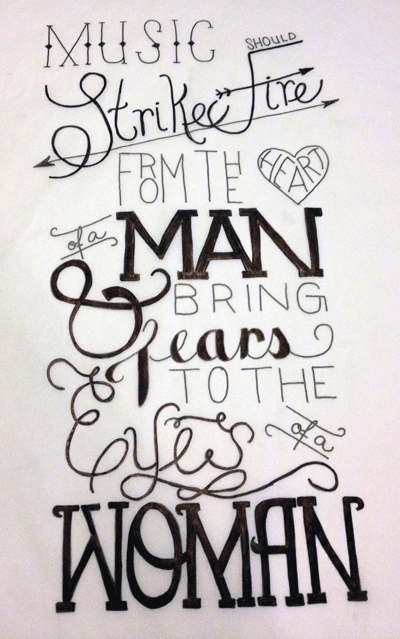 MUSIC SHOULD
Strike Fire
FROM THE HEART
of a MAN
& BRING
Tears
TO THE
Eyes of a
WOMAN